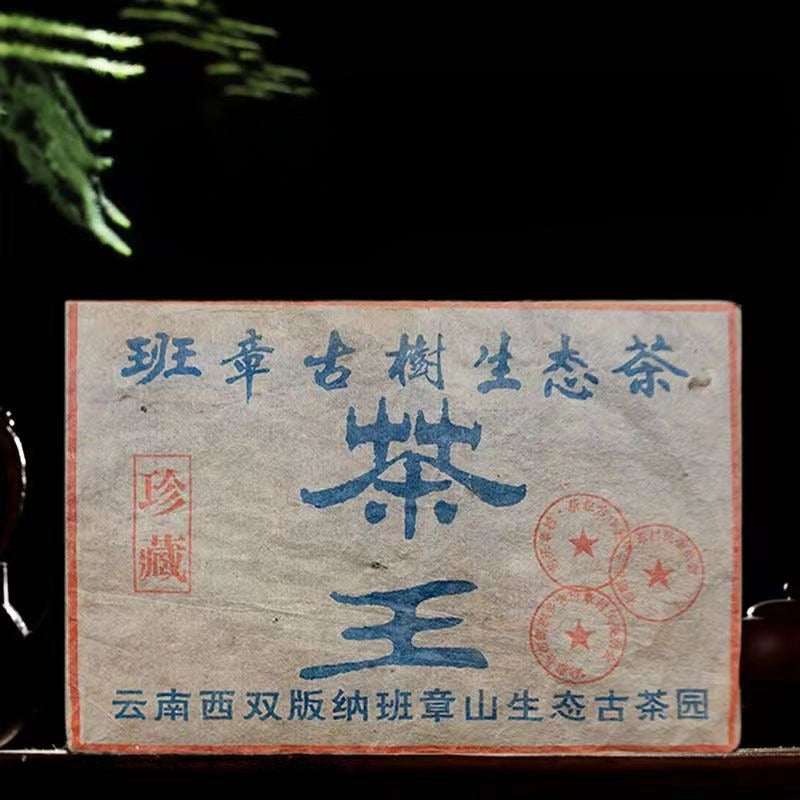 班章古樹生态茶
茶
王
珍
藏
云南西双版纳班章山生态古茶园